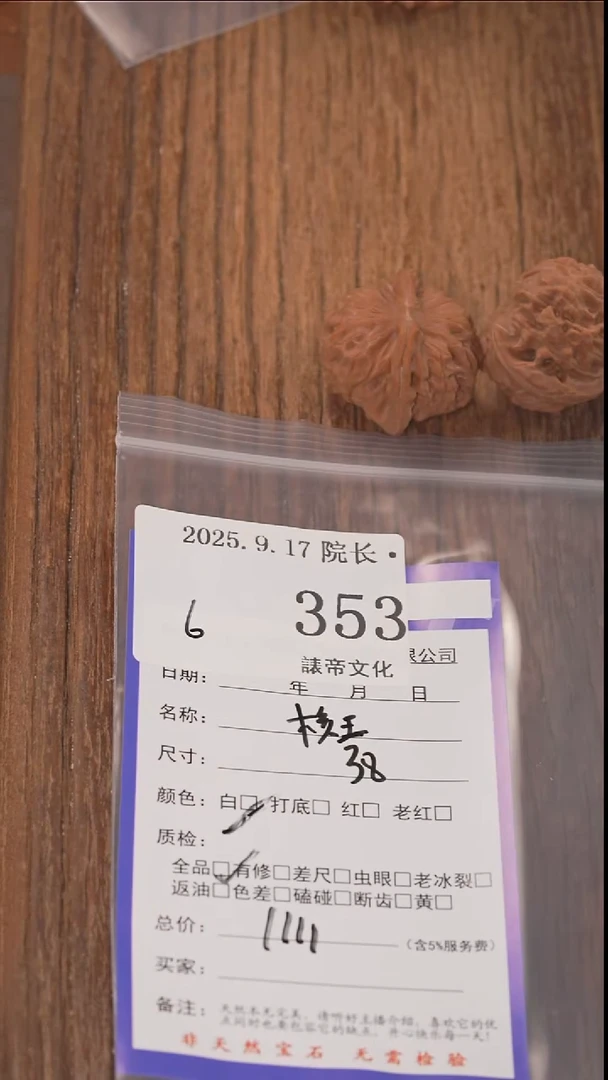 2025.9.17 院长·
6 353
限公司
誄帝文化
日期： 年 月 日
名称： 核王
尺寸： 38
颜色：白□ 打底□ 红□ 老红□
质检：
全品□有修□差尺□虫眼□老冰裂□
返油□色差□磕碰□断齿□黄□
总价： 1111 （含5%服务费）
买家：
备注：天然本无完美，请听好主播介绍，喜欢它的优
点同时也要包容它的缺点，开心快乐每一天！
非天然宝石 无需检验